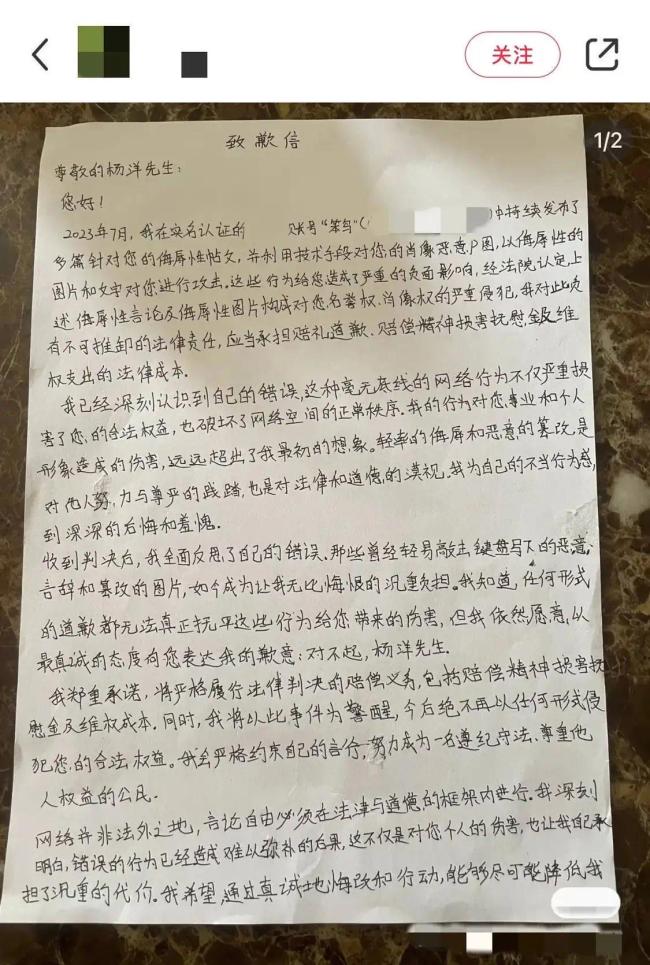 关注
1/2
致歉信
尊敬的杨洋先生:
您好!
2023年7月,我在实名认证的 账号"笨鸟"( )中持续发布了
多篇针对您的侮辱性帖文,并利用技术手段对您的肖像恶意P图,以侮辱性的
图片和文字对您进行攻击。这些行为给您造成了严重的负面影响,经法院认定,上
述侮辱性言论及侮辱性图片构成对您名誉权、肖像权的严重侵犯,我对此负
有不可推卸的法律责任,应当承担赔礼道歉、赔偿精神损害抚慰金及维
权支出的法律成本。
我已经深刻认识到自己的错误,这种毫无底线的网络行为不仅严重损
害了您的合法权益,也破坏了网络空间的正常秩序。我的行为对您事业和个人
形象造成的伤害,远远超出了我最初的想象。轻率的侮辱和恶意的篡改是
对他人努力与尊严的践踏,也是对法律和道德的漠视。我为自己的不当行为感
到深深的后悔和羞愧。
收到判决后,我全面反思了自己的错误。那些曾经轻易敲击键盘写下的恶意
言辞和篡改的图片,如今成为让我无比悔恨的沉重负担。我知道,任何形式
的道歉都无法真正抚平这些行为给您带来的伤害,但我依然愿意,以
最真诚的态度向您表达我的歉意:对不起,杨洋先生。
我郑重承诺,将严格履行法律判决的赔偿义务,包括赔偿精神损害抚
慰金及维权成本。同时,我将以此事件为警醒,今后绝不再以任何形式侵
犯您的合法权益。我会严格约束自己的言行,努力成为一名遵纪守法、尊重他
人权益的公民。
网络并非法外之地,言论自由必须在法律与道德的框架内进行。我深刻
明白,错误的行为已经造成难以弥补的后果,这不仅是对您个人的伤害,也让我自己承
担了沉重的代价。我希望,通过真诚地悔改和行动,能够尽可能降低我